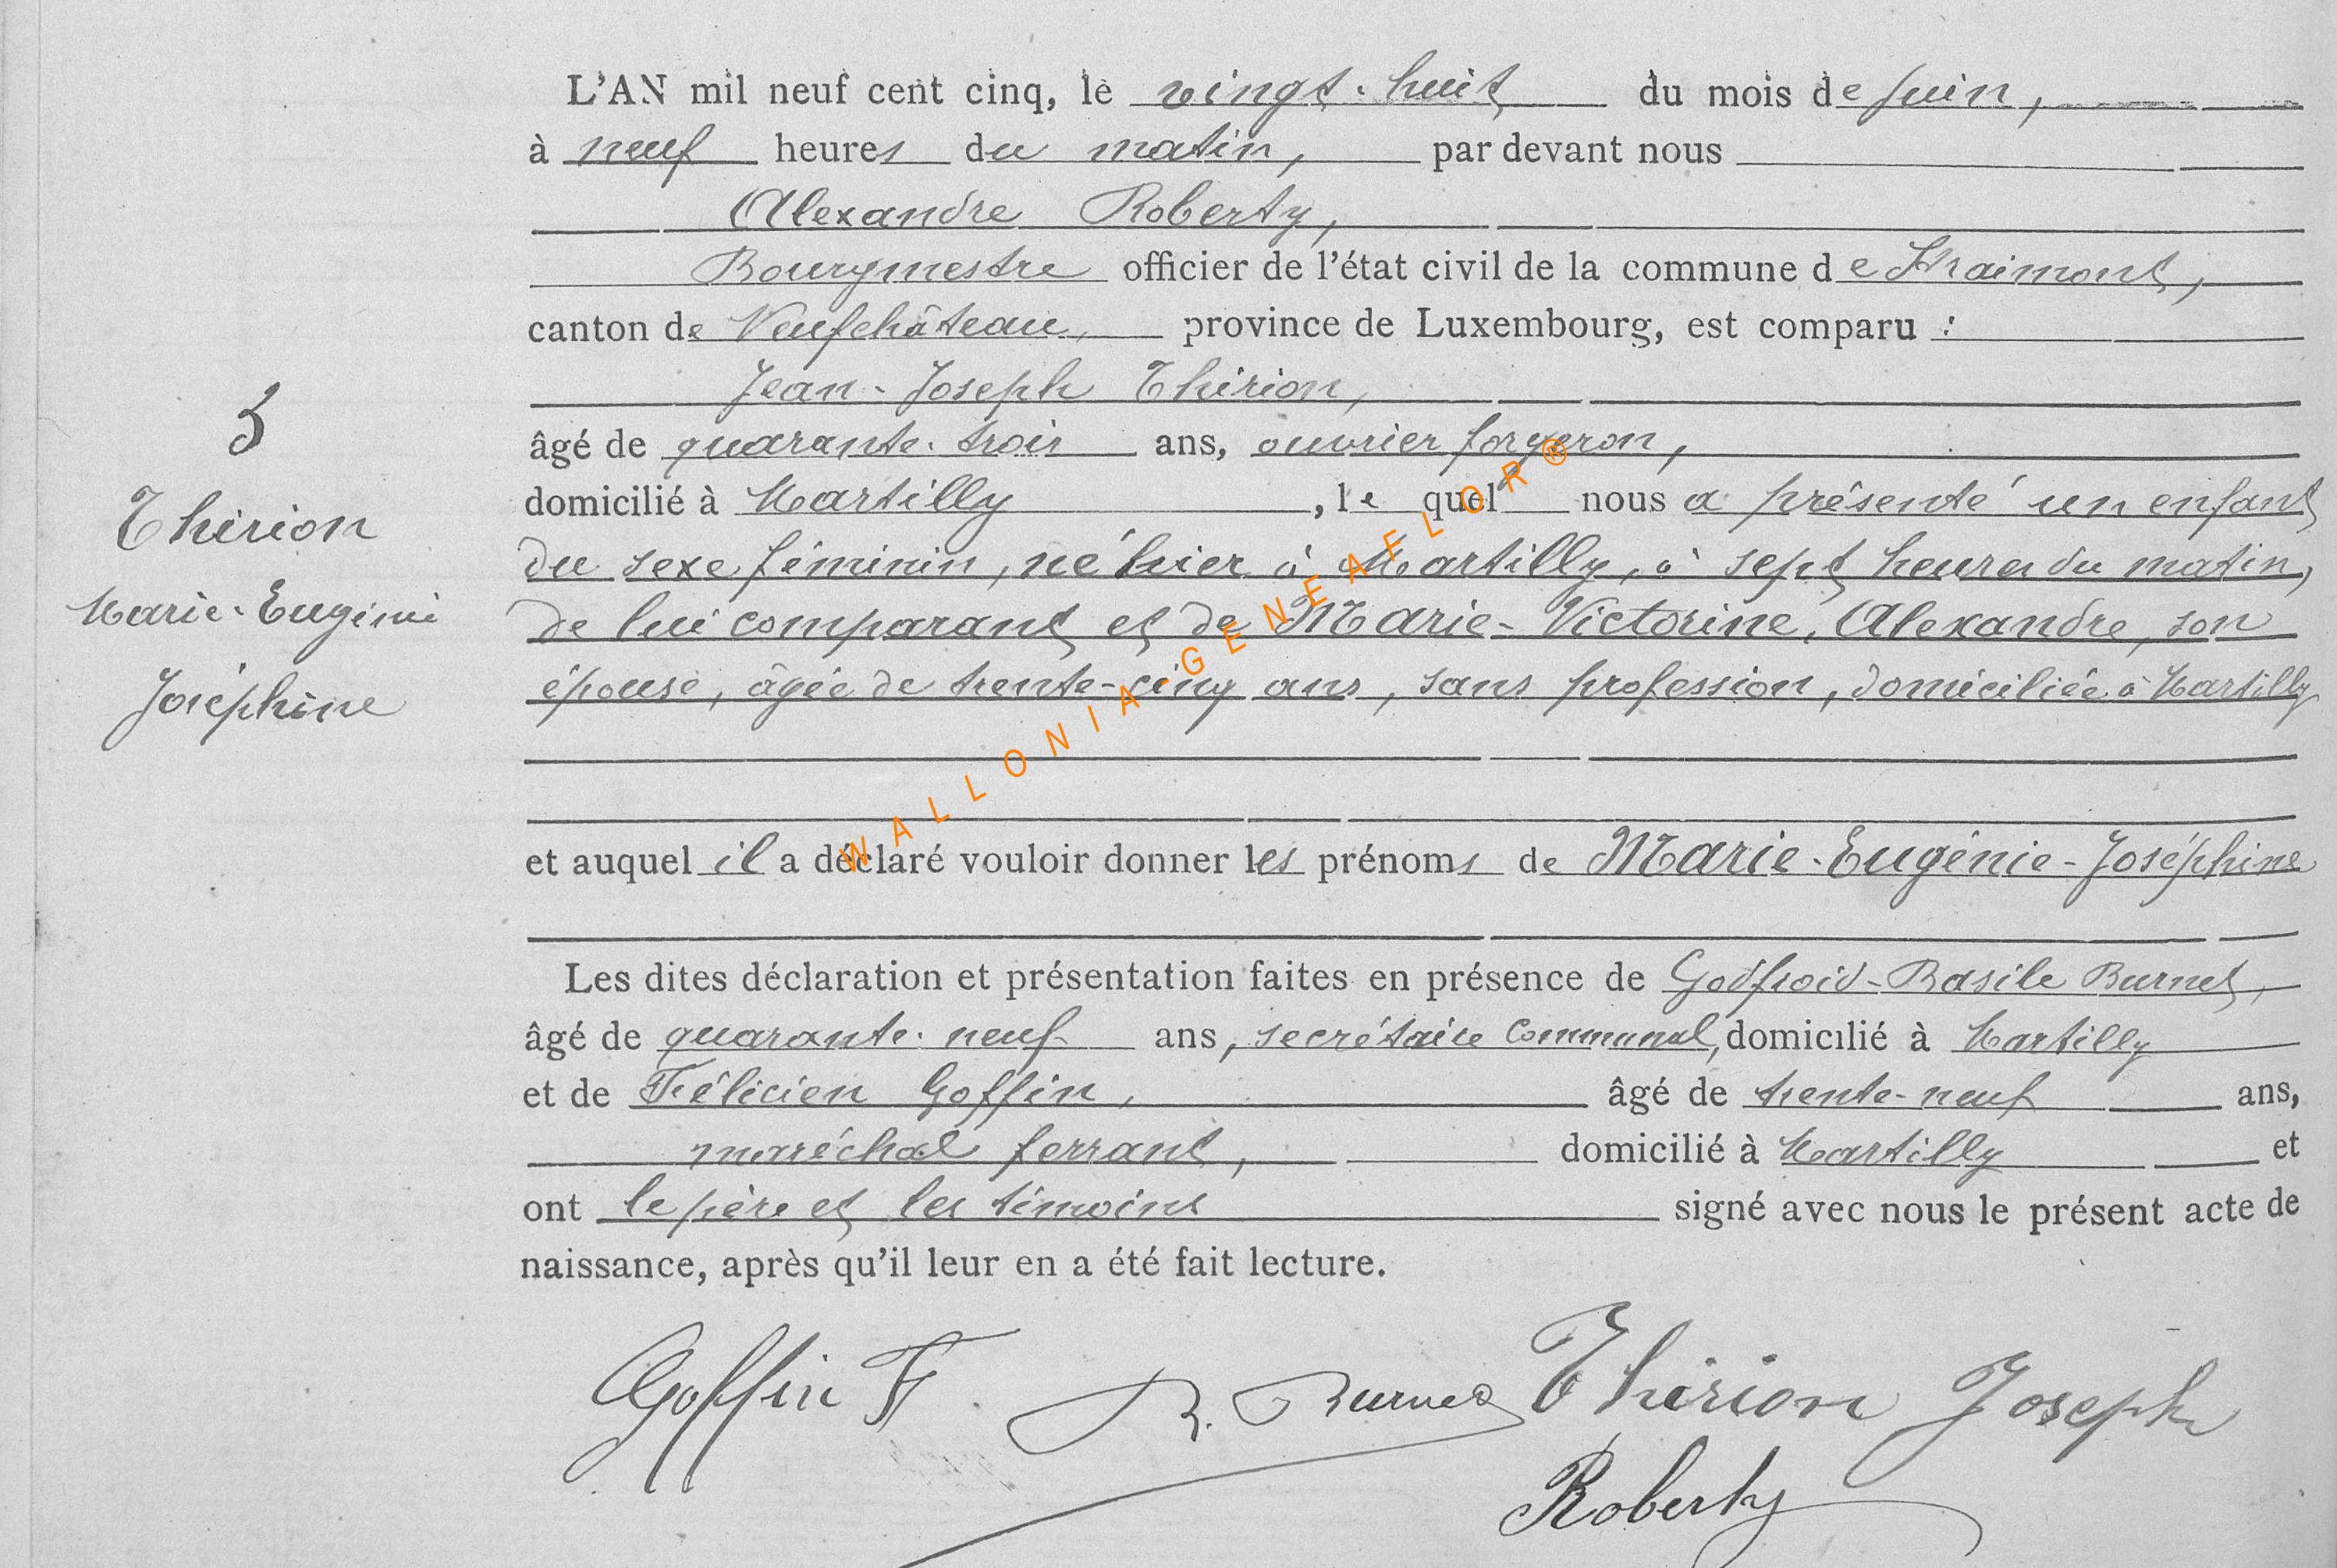 L'AN mil neuf cent cinq, le vingt-huit du mois de Juin,
à neuf heures du matin, par devant nous
Alexandre Roberty,
Bourgmestre officier de l'état civil de la commune de Straimont,
canton de Neufchâteau, province de Luxembourg, est comparu :
Jean-Joseph Thirion,
âgé de quarante-trois ans, ouvrier forgeron,
domicilié à Martilly, le quel nous a présenté un enfant
du sexe féminin, né hier à Martilly, à sept heures du matin,
de lui comparant et de Marie-Victorine, Alexandre, son
épouse, âgée de trente-cinq ans, sans profession, domiciliée à Martilly
et auquel il a déclaré vouloir donner les prénoms de Marie-Eugénie-Joséphine
Les dites déclaration et présentation faites en présence de Godfroid-Basile Burnet,
âgé de quarante-neuf ans, secrétaire communal, domicilié à Martilly
et de Félicien Goffin, âgé de trente-neuf ans,
maréchal ferrant, domicilié à Martilly et
ont le père et les témoins signé avec nous le présent acte de
naissance, après qu'il leur en a été fait lecture.
Goffin F. B. Burnet Thirion Joseph
Roberty
Thirion
Marie-Eugénie
Joséphine
WALLONIA-GENEAFLOR®